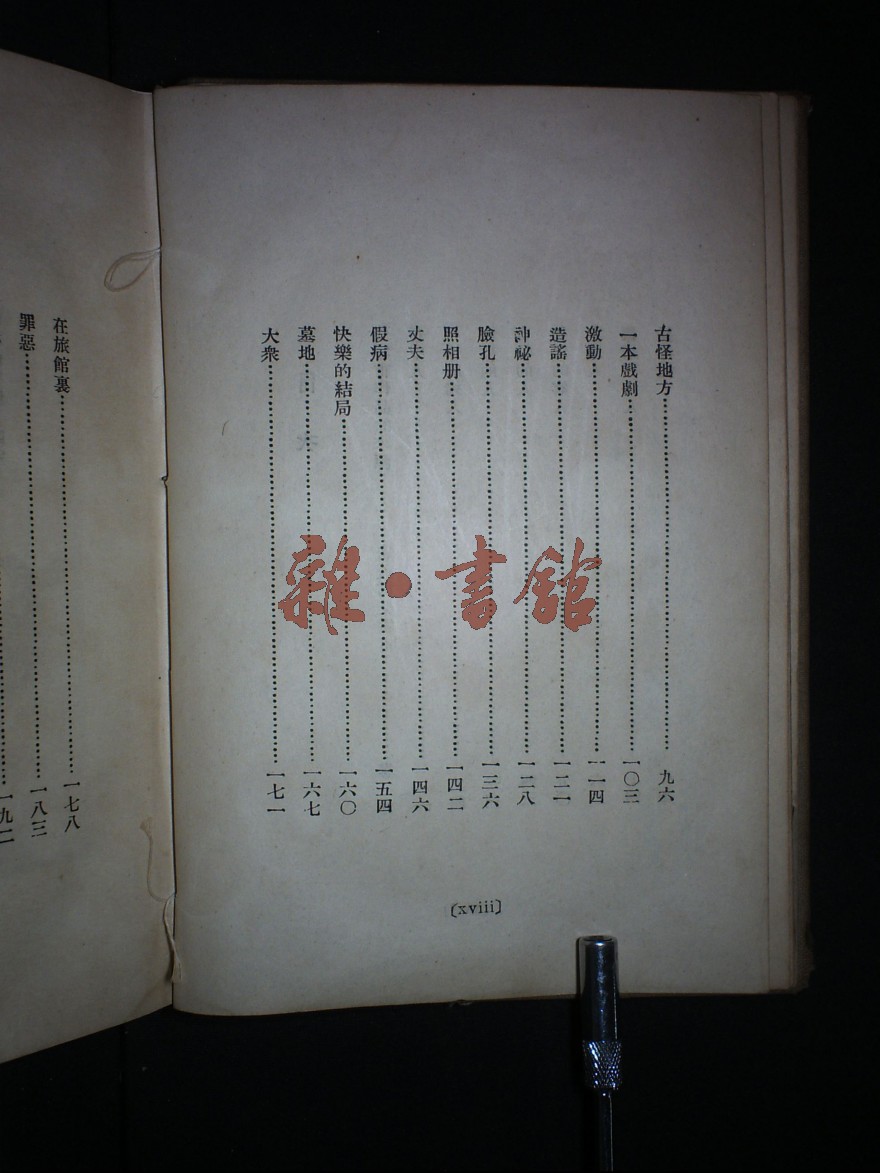 古怪地方……九六
一本戲劇……一〇三
激動……一一四
造謠……一二一
神祕……一二八
臉孔……一三六
照相册……一四二
丈夫……一四六
假病……一五四
快樂的結局……一六〇
墓地……一六七
大衆……一七一
〔xviii〕
在旅館裏……一七八
罪惡……一八三
一九二
雜·書館